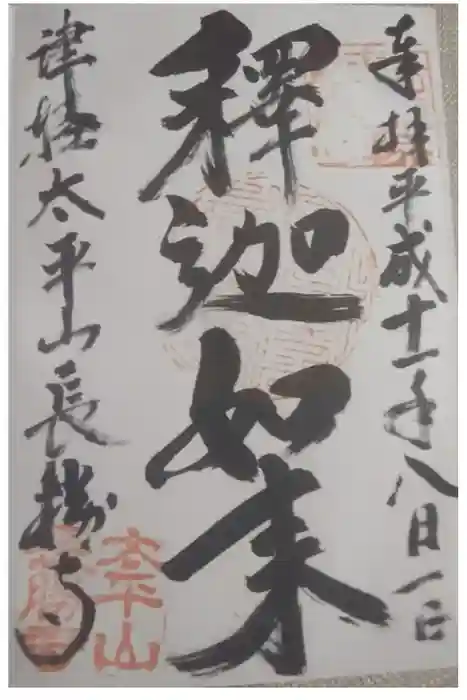 奉拝平成十一年八月一日
釋迦如来
津軽太平山長勝寺
太平山